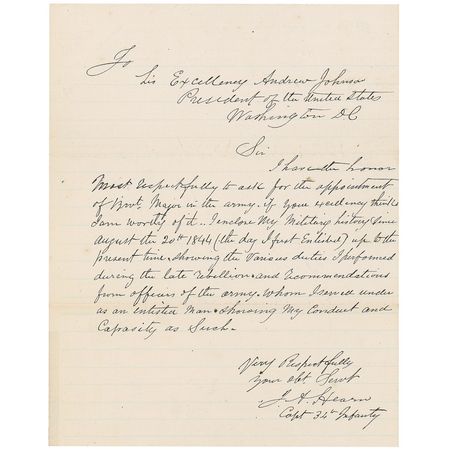 To
His Excellency Andrew Johnson
President of the United States
Washington DC
Sir
I have the honor
Most respectfully to ask for the appointment
of Bvt. Major in the army. if your excellency thinks
I am worthy of it.. I enclose My Military history since
august the 20th 1844 (the day I first Enlisted) up to the
present time. showing the Various duties I performed
during the late rebellion. and recommendations
from officers of the army. Whom I served under
as an enlisted Man. showing My Conduct and
Capasity as Such.
Very Respectfully
Your obt. Servt
J. A. Hearn
Capt 34th Infanty